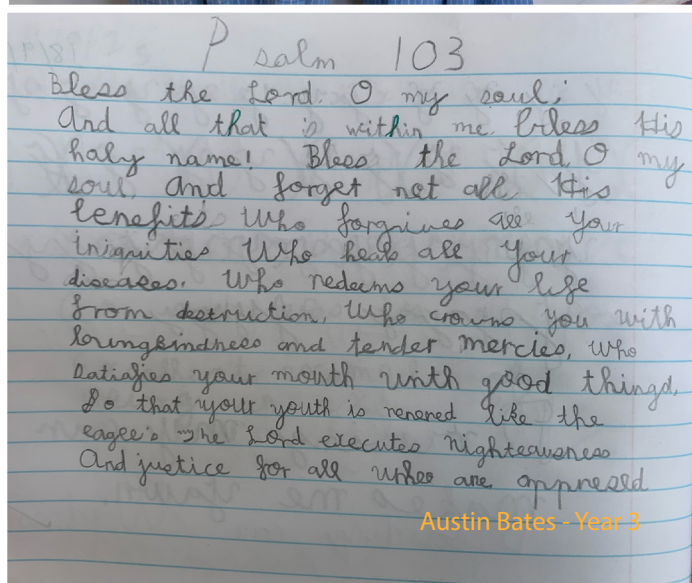 Psalm 103
Bless the Lord. O my soul;
And all that is within me. bless His
haly name! Bless the Lord, O my
soul, And forget not all His
benefits Who forgives all your
iniquities Who heals all your
diseases. Who redeems your life
from destruction, Who crowns you with
lovingkindness and tender mercies, who
satisfies your mouth with good things,
So that your youth is renered like the
eagle's The Lord executes righteousness
And justice for all who are oppressed
Austin Bates - Year 3